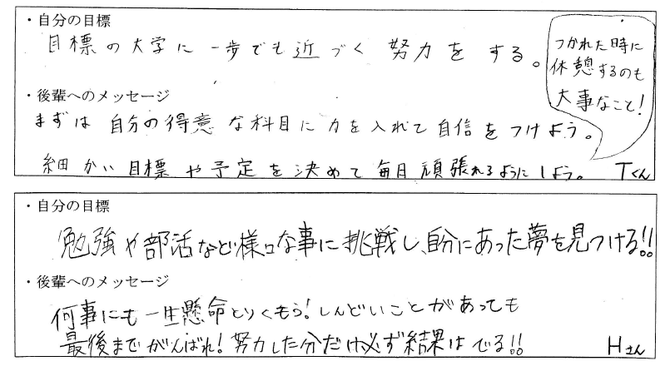 ・自分の目標
目標の大学に一歩でも近づく努力をする。
つかれた時に
休憩するのも
大事なこと!
・後輩へのメッセージ
まずは自分の得意な科目に力を入れて自信をつけよう。
細かい目標や予定を決めて毎日頑張れるようにしよう。 Tくん
・自分の目標
勉強や部活など様々な事に挑戦し、自分にあった夢を見つける!!
・後輩へのメッセージ
何事にも一生懸命とりくもう!しんどいことがあっても
最後までがんばれ!努力した分だけ必ず結果はでる!! Hさん